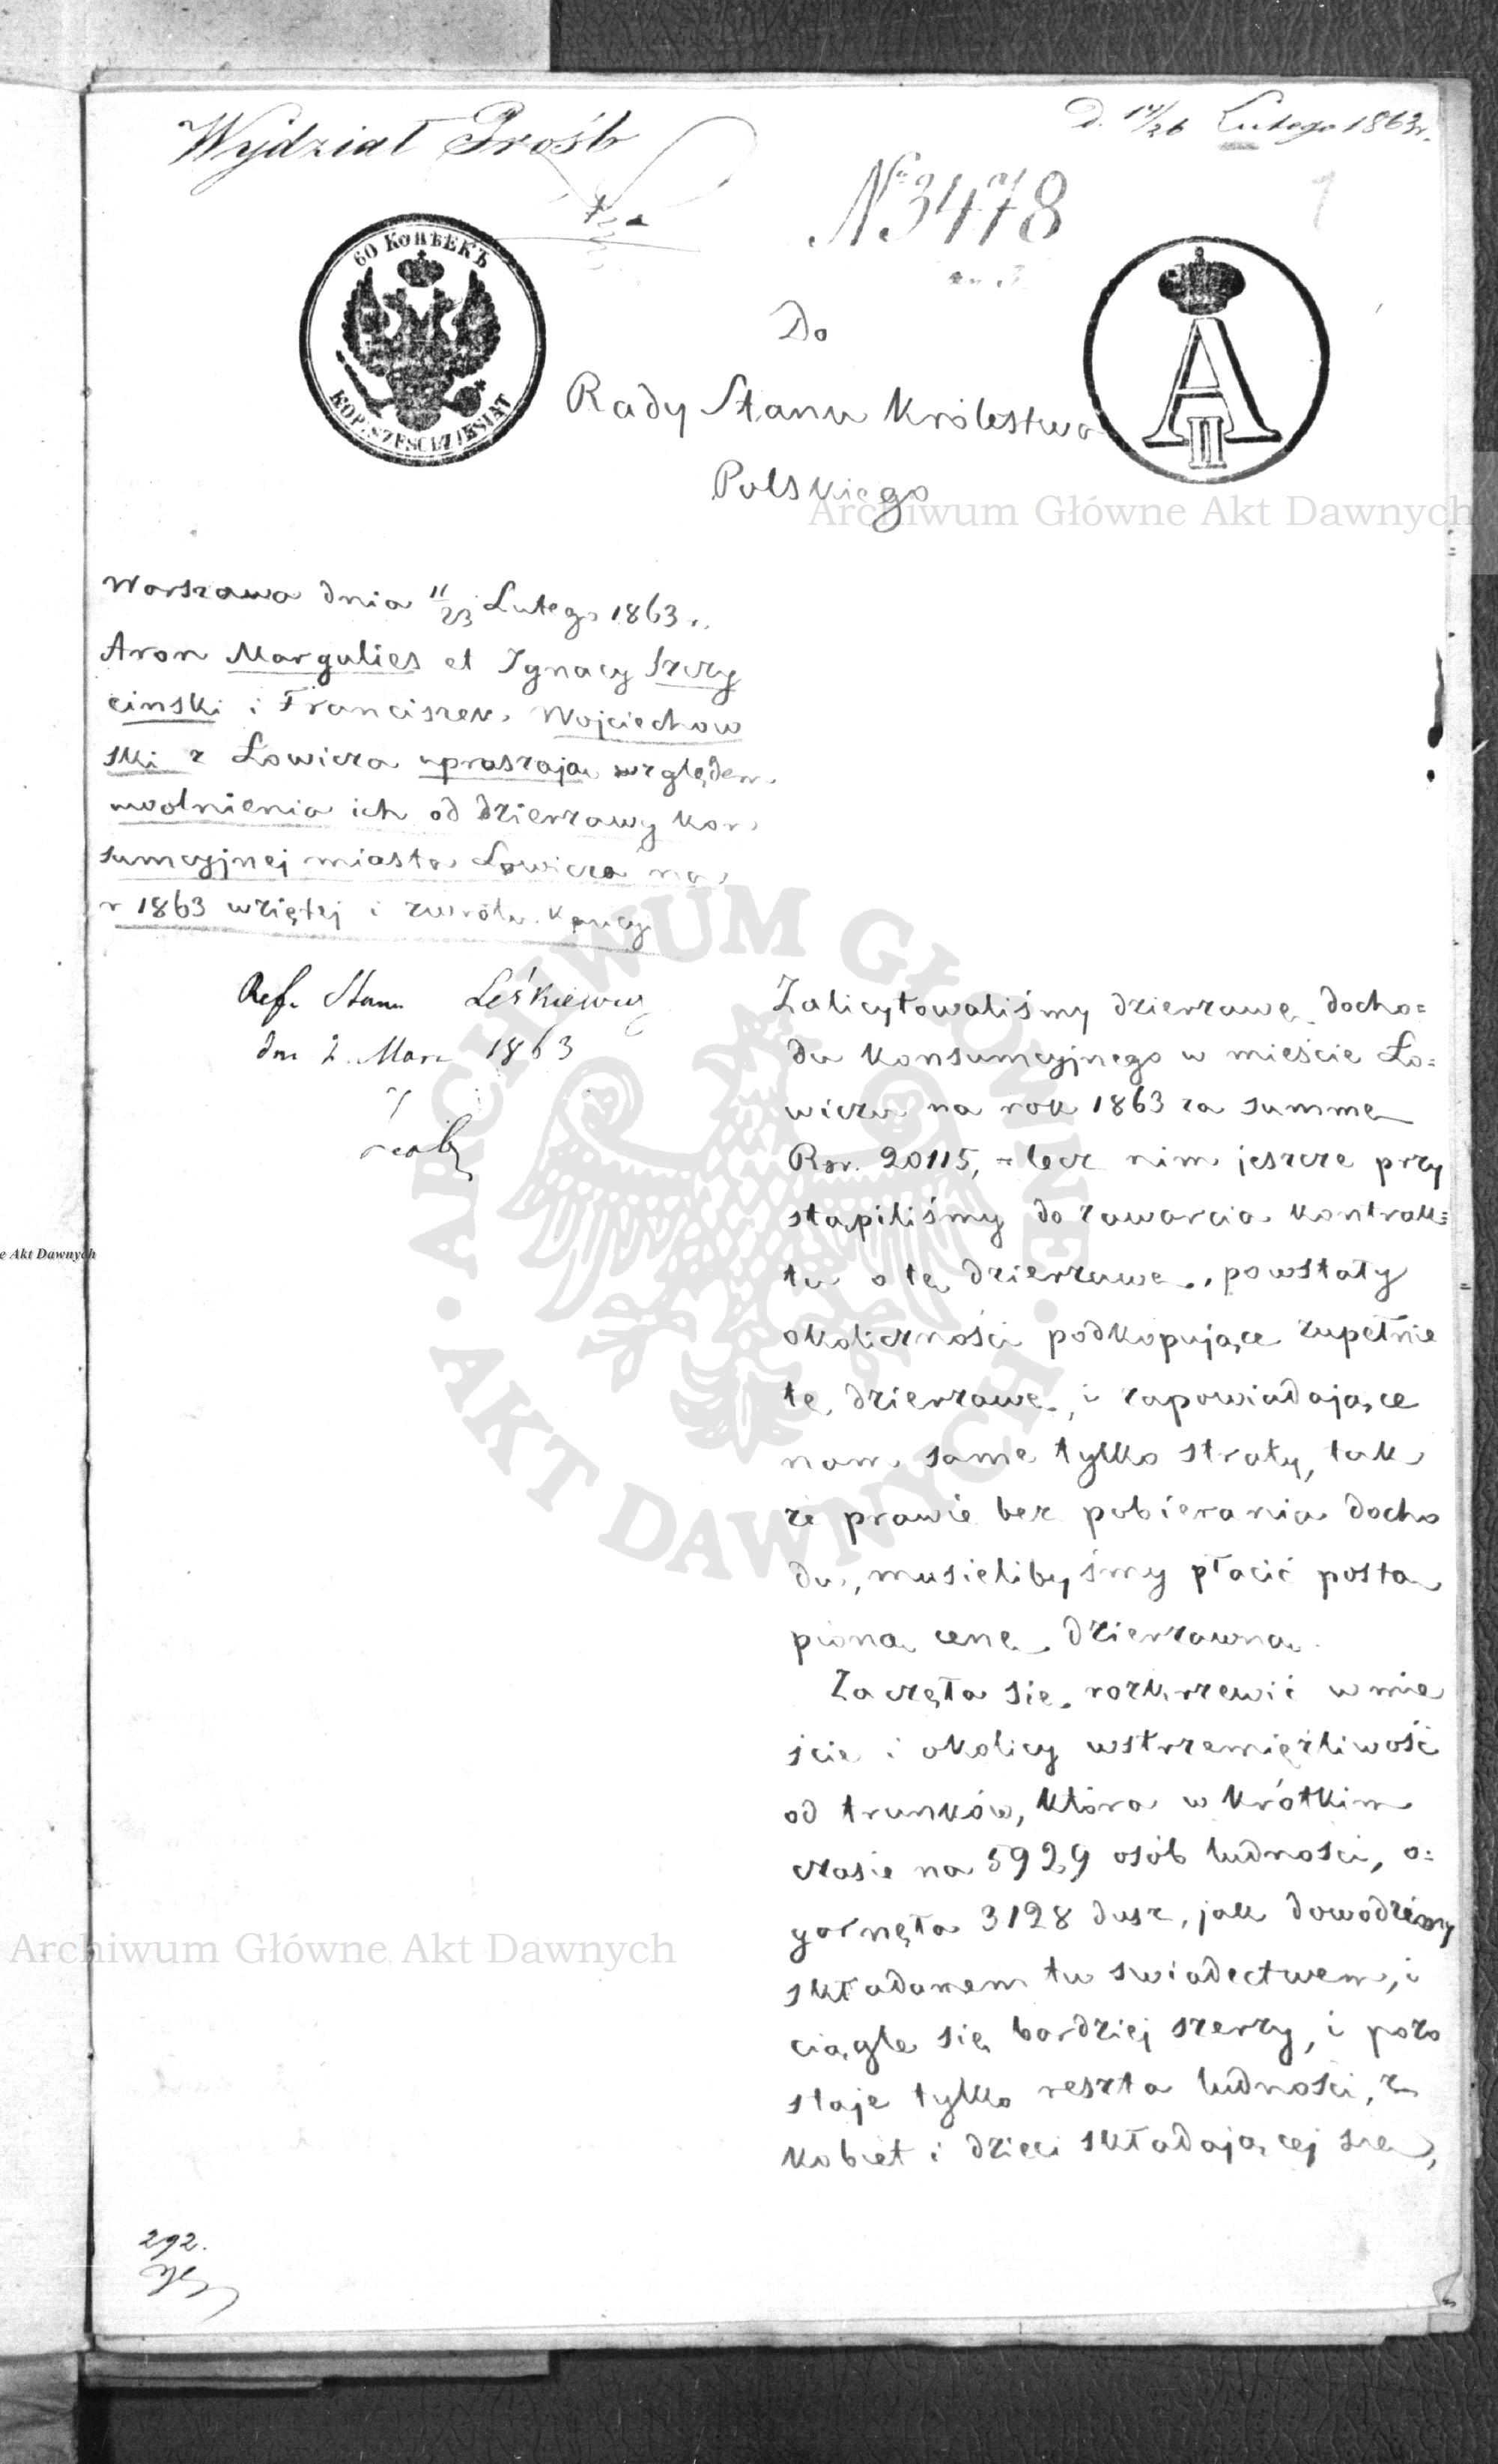 Wydział Prośb
D. 14/26 Lutego 1863 r.
№ 3478
1
60 КОПѢЕКЪ
KOP. SZEŚĆDZIESIĄT
A II
Do
Rady Stanu Królestwa
Polskiego
Archiwum Główne Akt Dawnych
Warszawa dnia 11/23 Lutego 1863 r.
Aron Margulies et Ignacy Szczy
cinski i Franciszek Wojciechow
ski z Łowicza upraszają względem
uwolnienia ich od dzierzawy kon
sumcyjnej miasta Łowicza na
r 1863 wziętej i zwrotu kaucyi
Ref. Stanu Leśkiewicz
dnia 2 Marca 1863
Zalicytowaliśmy dzierzawę docho=
du konsumcyjnego w mieście Ło=
wiczu na rok 1863 za summę
Rsr. 20115, – lecz nim jeszcze przy
stąpiliśmy do zawarcia kontrak=
tu o tę dzierzawę, powstały
okoliczności podkopujące zupełnie
tę dzierzawę, i zapowiadające
nam same tylko straty, tak
że prawie bez pobierania docho
du, musielibyśmy płacić postą
pioną cenę dzierzawną.
Zaczęła się rozkrzewić w mie
ście i okolicy wstrzemięźliwość
od trunków, która w krótkim
czasie na 5929 osób ludności, o=
garnęła 3128 dusz, jak dowodzimy
składanem tu swiadectwem, i
ciągle się bardziej szerzy, i pozo
staje tylko reszta ludności, z
kobiet i dzieci składającej się,
292.
e Akt Dawnych
Archiwum Główne Akt Dawnych
ARCHIWUM GŁÓWNE • AKT DAWNYCH •